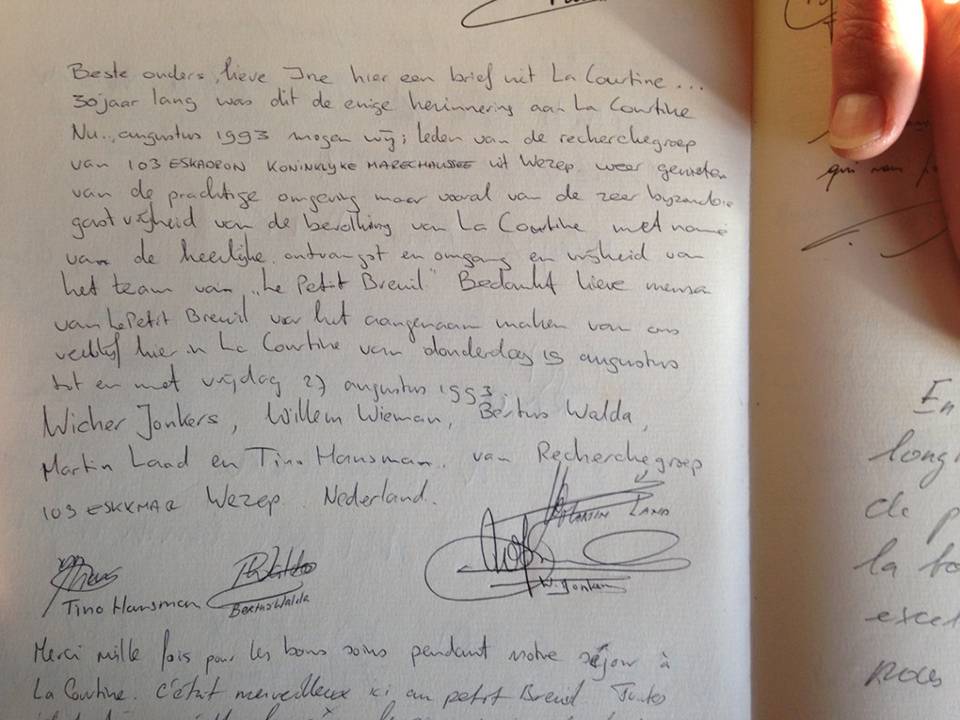 Beste ouders, lieve Ine hier een brief uit La Courtine...
30 jaar lang was dit de enige herinnering aan La Courtine
Nu.. augustus 1993 mogen wij; leden van de recherchegroep
van 103 ESKADRON KONINKLYKE MARECHAUSSEE uit Wezep weer genieten
van de prachtige omgeving maar vooral van de zeer byzondere
gastvrijheid van de bevolking van La Courtine met name
van de heerlijke ontvangst en omgang en vrijheid van
het team van "Le Petit Breuil" Bedankt lieve mensen
van Le Petit Breuil voor het aangenaam maken van ons
verblijf hier in La Courtine van donderdag 19 augustus
tot en met vrijdag 27 augustus 1993.
Wicher Jonkers, Willem Wieman, Bertus Walda,
Martin Land en Tino Hansman. van Recherchegroep
103 ESKKMAR Wezep Nederland.
MARTIN LAND
W. Jonkers
Tino Hansman
Bertus Walda
Merci mille fois pour les bons soins pendant notre séjour à
La Courtine. C'était merveilleux ici au petit Breuil
En
long
de p
la
excel
nous